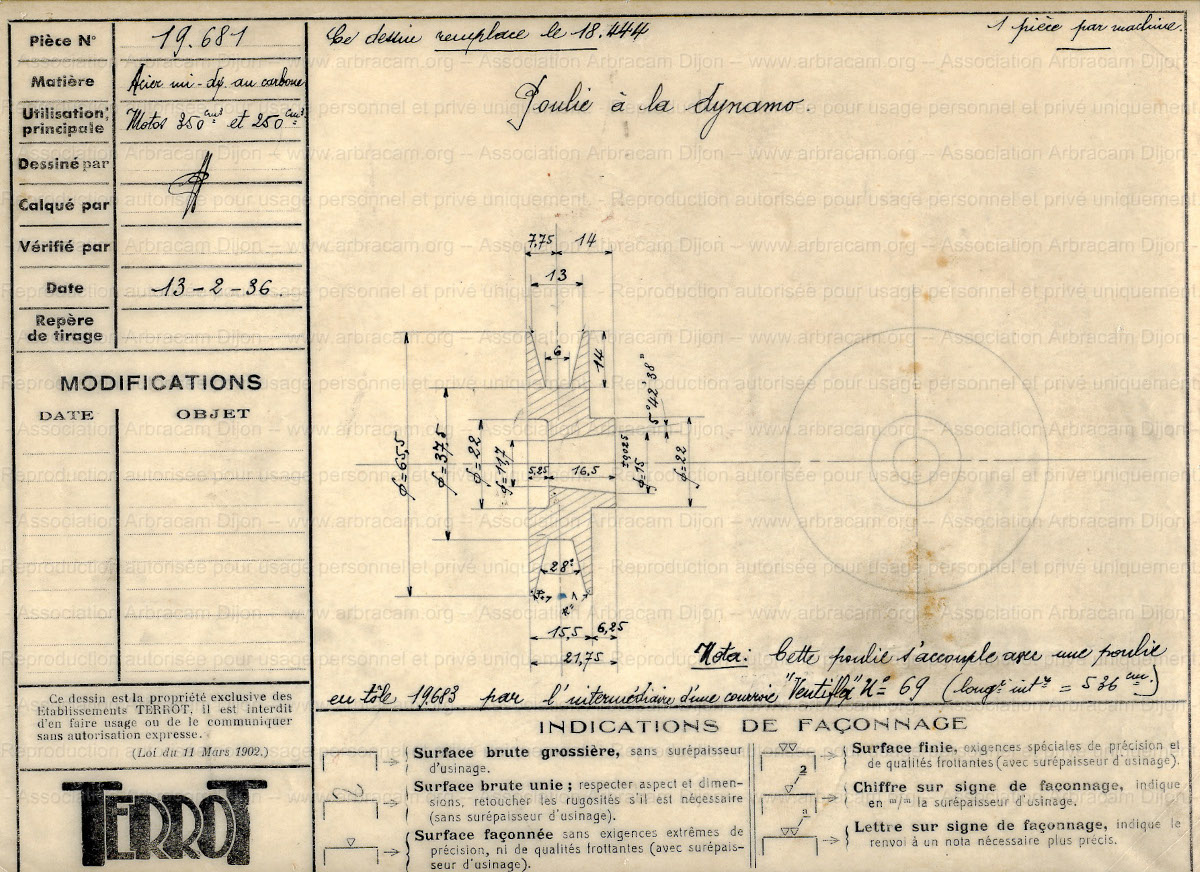 Pièce N° 19.681
Matière Acier mi-d. au carbone
Utilisation principale Motos 350 cm³ et 250 cm³
Dessiné par
Calqué par
Vérifié par
Date 13-2-36
Repère de tirage
MODIFICATIONS
DATE OBJET
Ce dessin est la propriété exclusive des
Etablissements TERROT, il est interdit
d'en faire usage ou de le communiquer
sans autorisation expresse.
(Loi du 11 Mars 1902.)
TERROT
Ce dessin remplace le 18.444
1 pièce par machine.
Poulie à la dynamo.
7,75 14
13
6
14
5°42'38"
ϕ=65,5
ϕ=37,5
ϕ=22
ϕ=11,7
5,25 16,5
ϕ=15
ϕ=22
28°
15,5 6,25
21,75
Nota: Cette poulie s'accouple avec une poulie
en tôle 19683 par l'intermédiaire d'une courroie "Ventiflex" N° 69 (longr intre = 536 cm.)
INDICATIONS DE FAÇONNAGE
Surface brute grossière, sans surépaisseur
d'usinage.
Surface brute unie ; respecter aspect et dimen-
sions, retoucher les rugosités s'il est nécessaire
(sans surépaisseur d'usinage).
Surface façonnée sans exigences extrêmes de
précision, ni de qualités frottantes (avec surépais-
seur d'usinage).
Surface finie, exigences spéciales de précision et
de qualités frottantes (avec surépaisseur d'usinage).
2
Chiffre sur signe de façonnage, indique
en m/m la surépaisseur d'usinage.
a
Lettre sur signe de façonnage, indique le
renvoi à un nota nécessaire plus précis.
Association Arbracam Dijon – www.arbracam.org
Reproduction autorisée pour usage personnel et privé uniquement